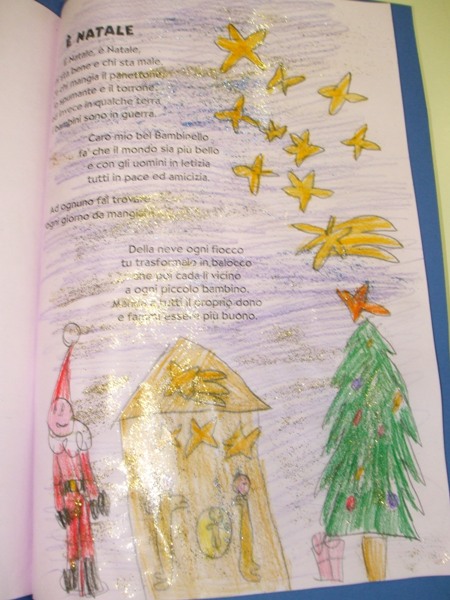 È NATALE
È Natale, è Natale,
sta bene e chi sta male,
chi mangia il panettone
spumante e il torrone
invece in qualche terra
bambini sono in guerra.
Caro mio bel Bambinello
fa' che il mondo sia più bello
e con gli uomini in letizia
tutti in pace ed amicizia.
Ad ognuno fai trovare
ogni giorno da mangiare
Della neve ogni fiocco
tu trasformalo in balocco
che poi cada lì vicino
a ogni piccolo bambino.
Manda a tutti il proprio dono
e fammi essere più buono.